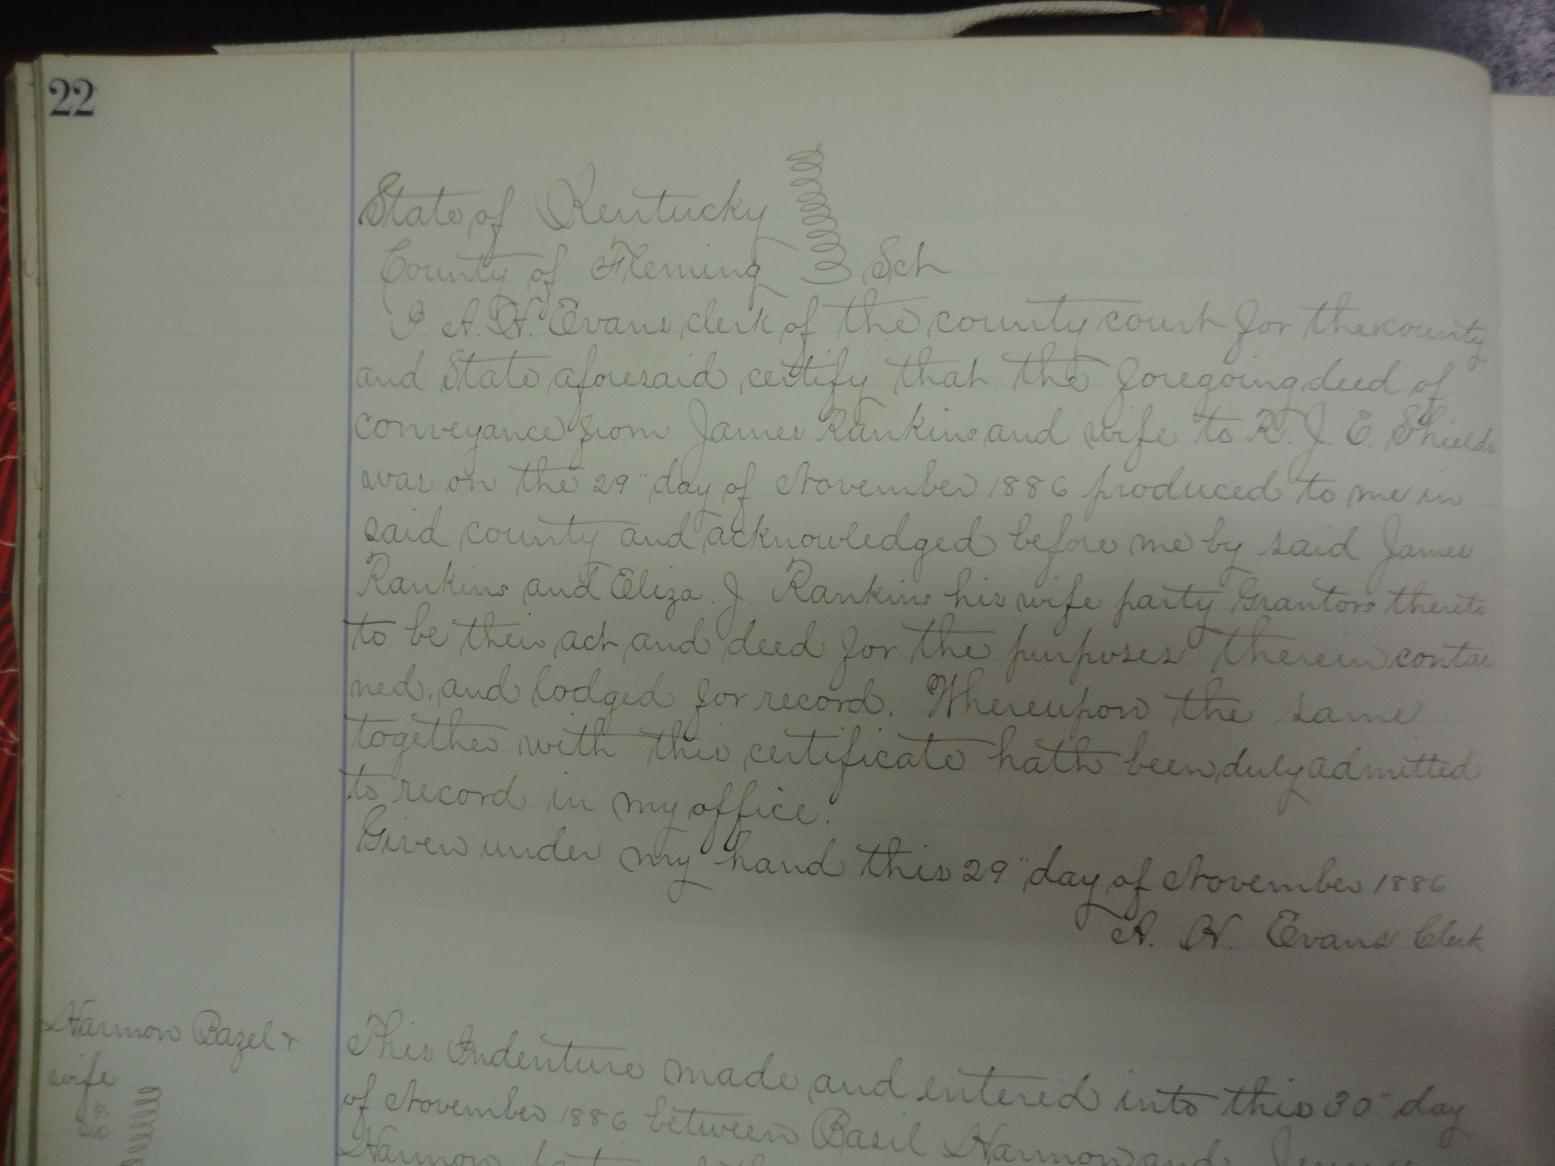 22
State of Kentucky
County of Fleming Sct
I. A. H. Evans clerk of the county court for the county
and State aforesaid certify that the foregoing deed of
conveyance from James Rankins and wife to R. J. E. Shields
was on the 29" day of November 1886 produced to me in
said county and acknowledged before me by said James
Rankins and Eliza J. Rankins his wife party Grantors thereto
to be their act and deed for the purposes therein contai
ned, and lodged for record. Whereupon the same
together with this certificate hath been duly admitted
to record in my office.
Given under my hand this 29" day of November 1886
A. H. Evans Clerk
Harmon Bazel &
wife
This Indenture made and entered into this 30" day
of November 1886 between Basil Harmon and
Harmon